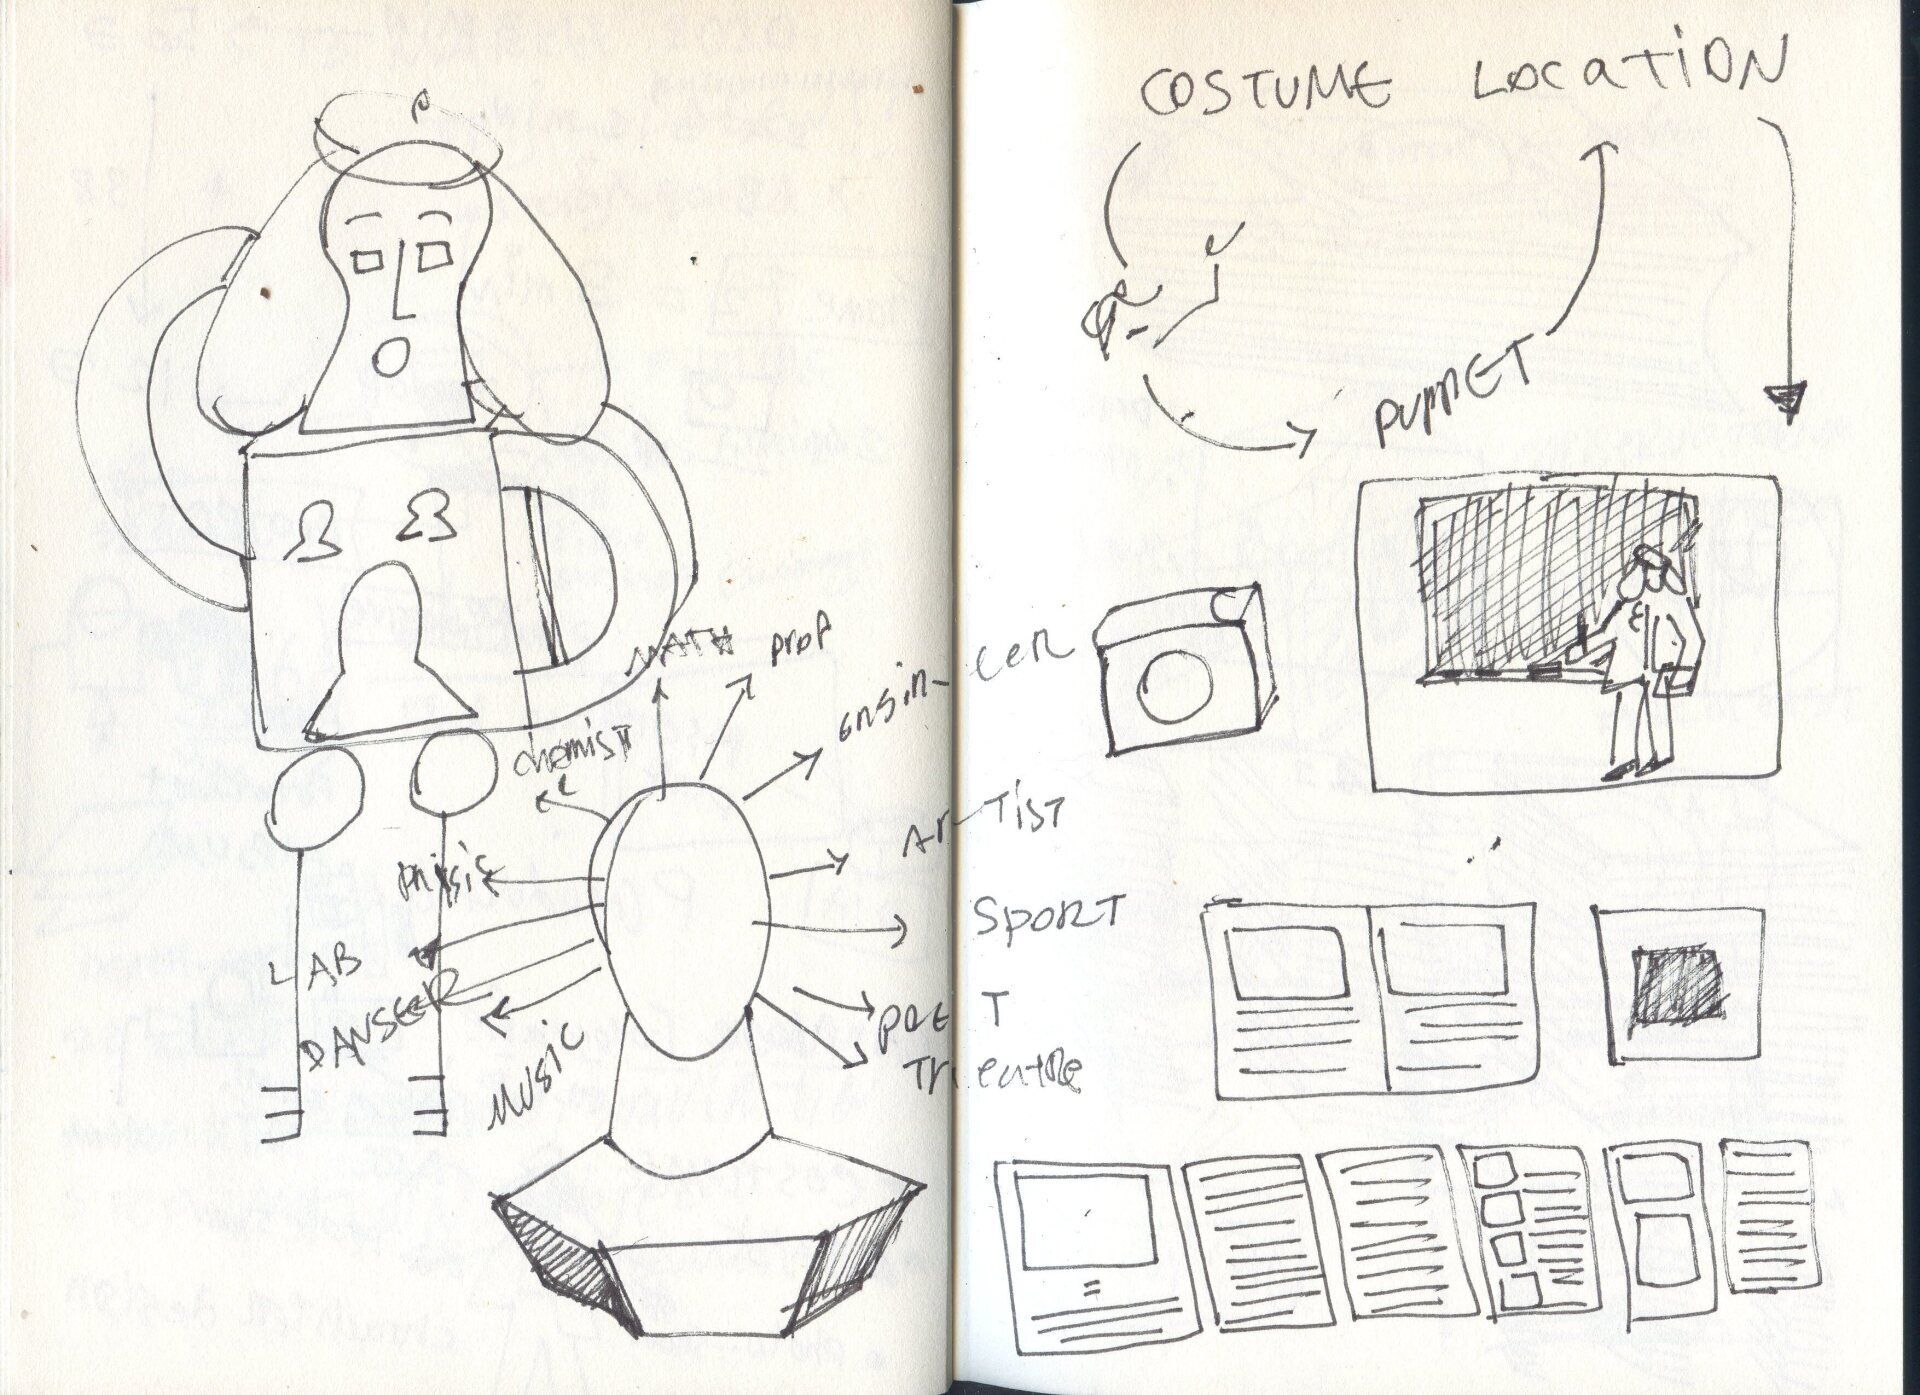 COSTUME LOCATION
PUPPET
MATH
prof
ensin-eer
chemist
Artist
phisic
SPORT
LAB
DANSEER
POET
MUSIC
Theatre